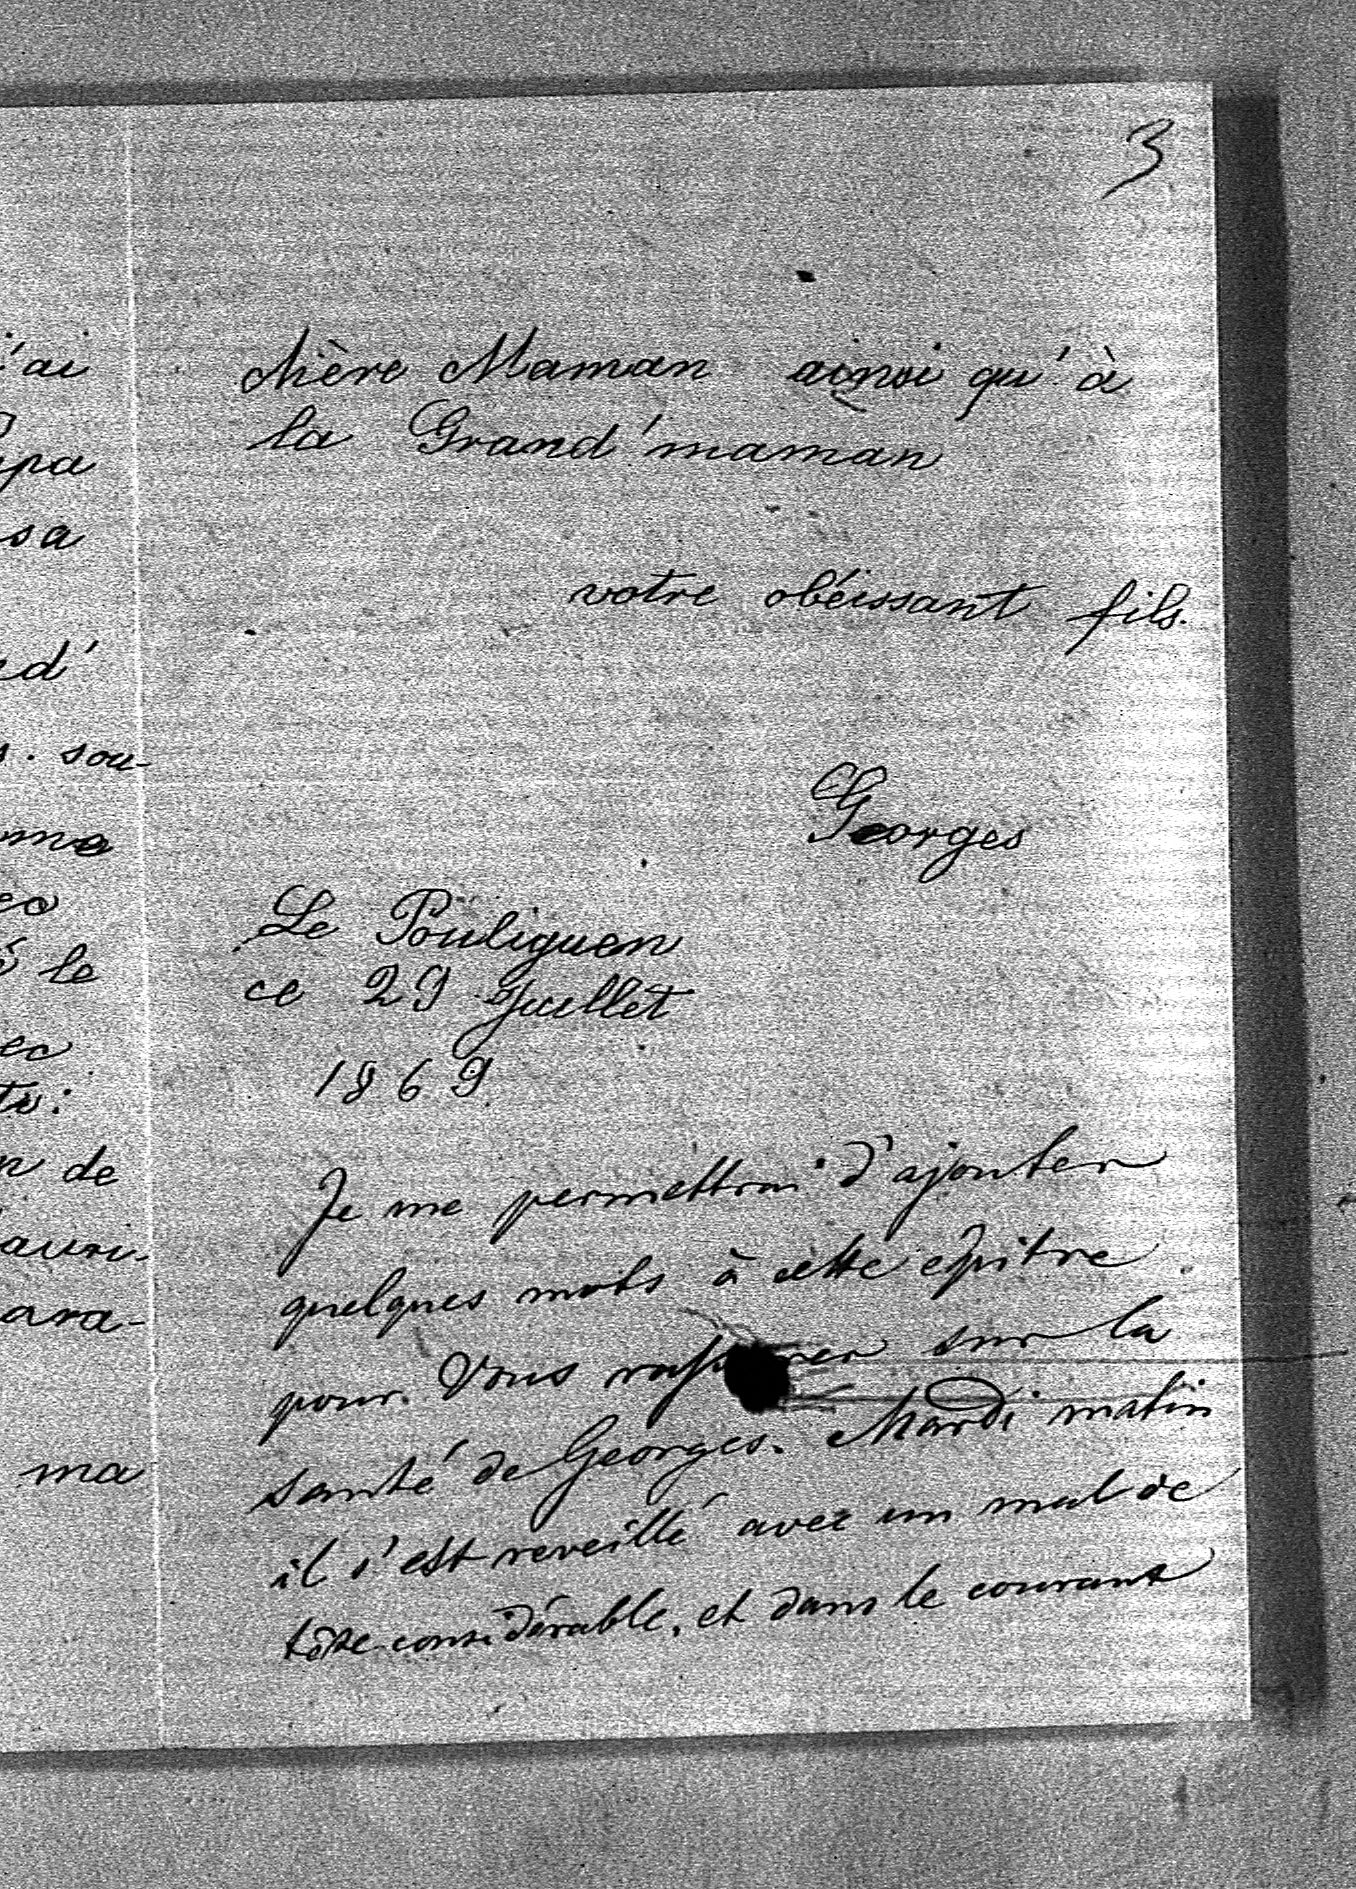 'ai
pa
sa
ed'
s. sou-
me
ec
é le
ec
te:
n de
auri-
ara-
ma
3
chère Maman ainsi qu'à
la Grand'maman
votre obéissant fils.
Georges
Le Pouliguen
ce 29 Juillet
1869
Je me permettrai d'ajouter
quelques mots à cette épitre
pour Vous rassurer sur la
santé de Georges. Mardi matin
il s'est reveillé avec un mal de
tête considérable, et dans le courant